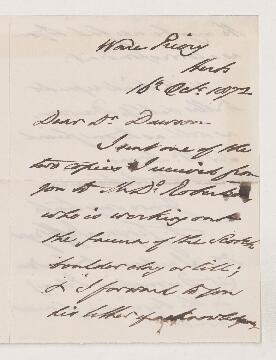 Ware Priory
Herts
16th Oct. 1872
Dear Dr Dawson
I sent one of the
two copies I received from
you to Mr D. Robertson
who is working out
the fauna of the Scotch
boulder clay or till;
& I forward to you
his letter of acknowledgm